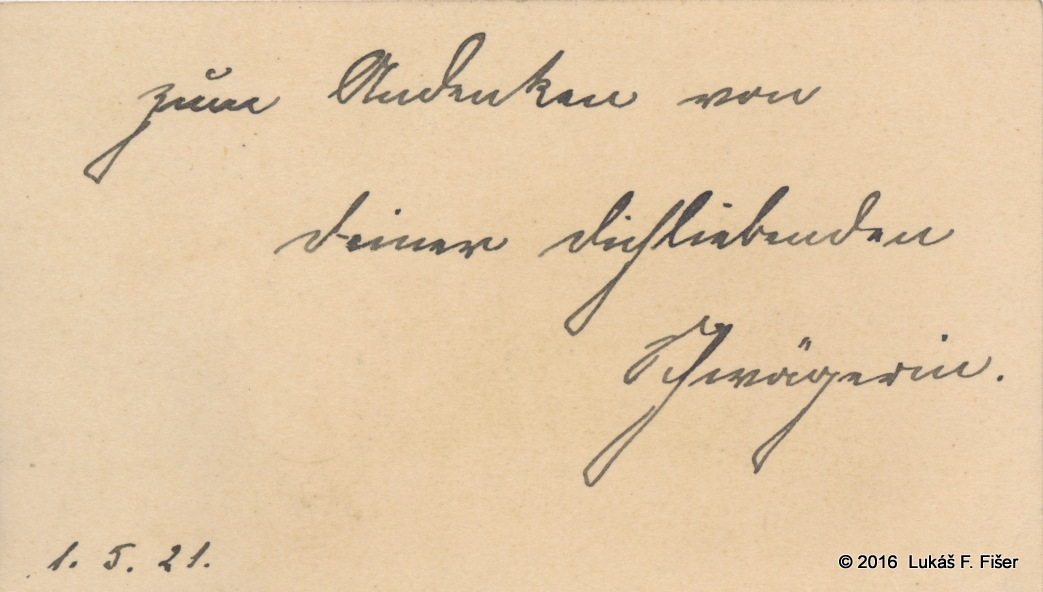 zum Andenken von
deiner dichliebenden
Schwägerin.
1. 5. 21.
© 2016 Lukáš F. Fišer